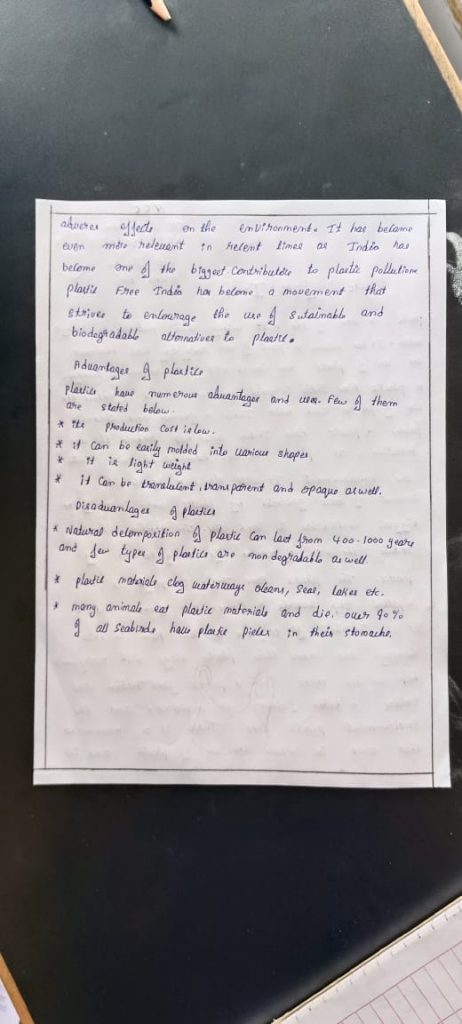 adverse effects on the environment. It has become
even more relevant in recent times as India has
become one of the biggest contributers to plastic pollution.
plastic Free India has become a movement that
strives to encourage the use of sutainable and
biodegradable alternatives to plastic.
Advantages of plastics
plastics have numerous advantages and uses. Few of them
are stated below.
* its production cost is low.
* it can be easily molded into various shapes
* it is light weight
* it can be translucent, transparent and opaque as well.
Disadvantages of plastics
* Natural decomposition of plastic can last from 400-1000 years
and few types of plastics are non degradable as well.
* plastic materials clog waterways oceans, seas, lakes etc.
* many animals eat plastic materials and die. over 90%
of all seabirds have plastic pieces in their stomachs.